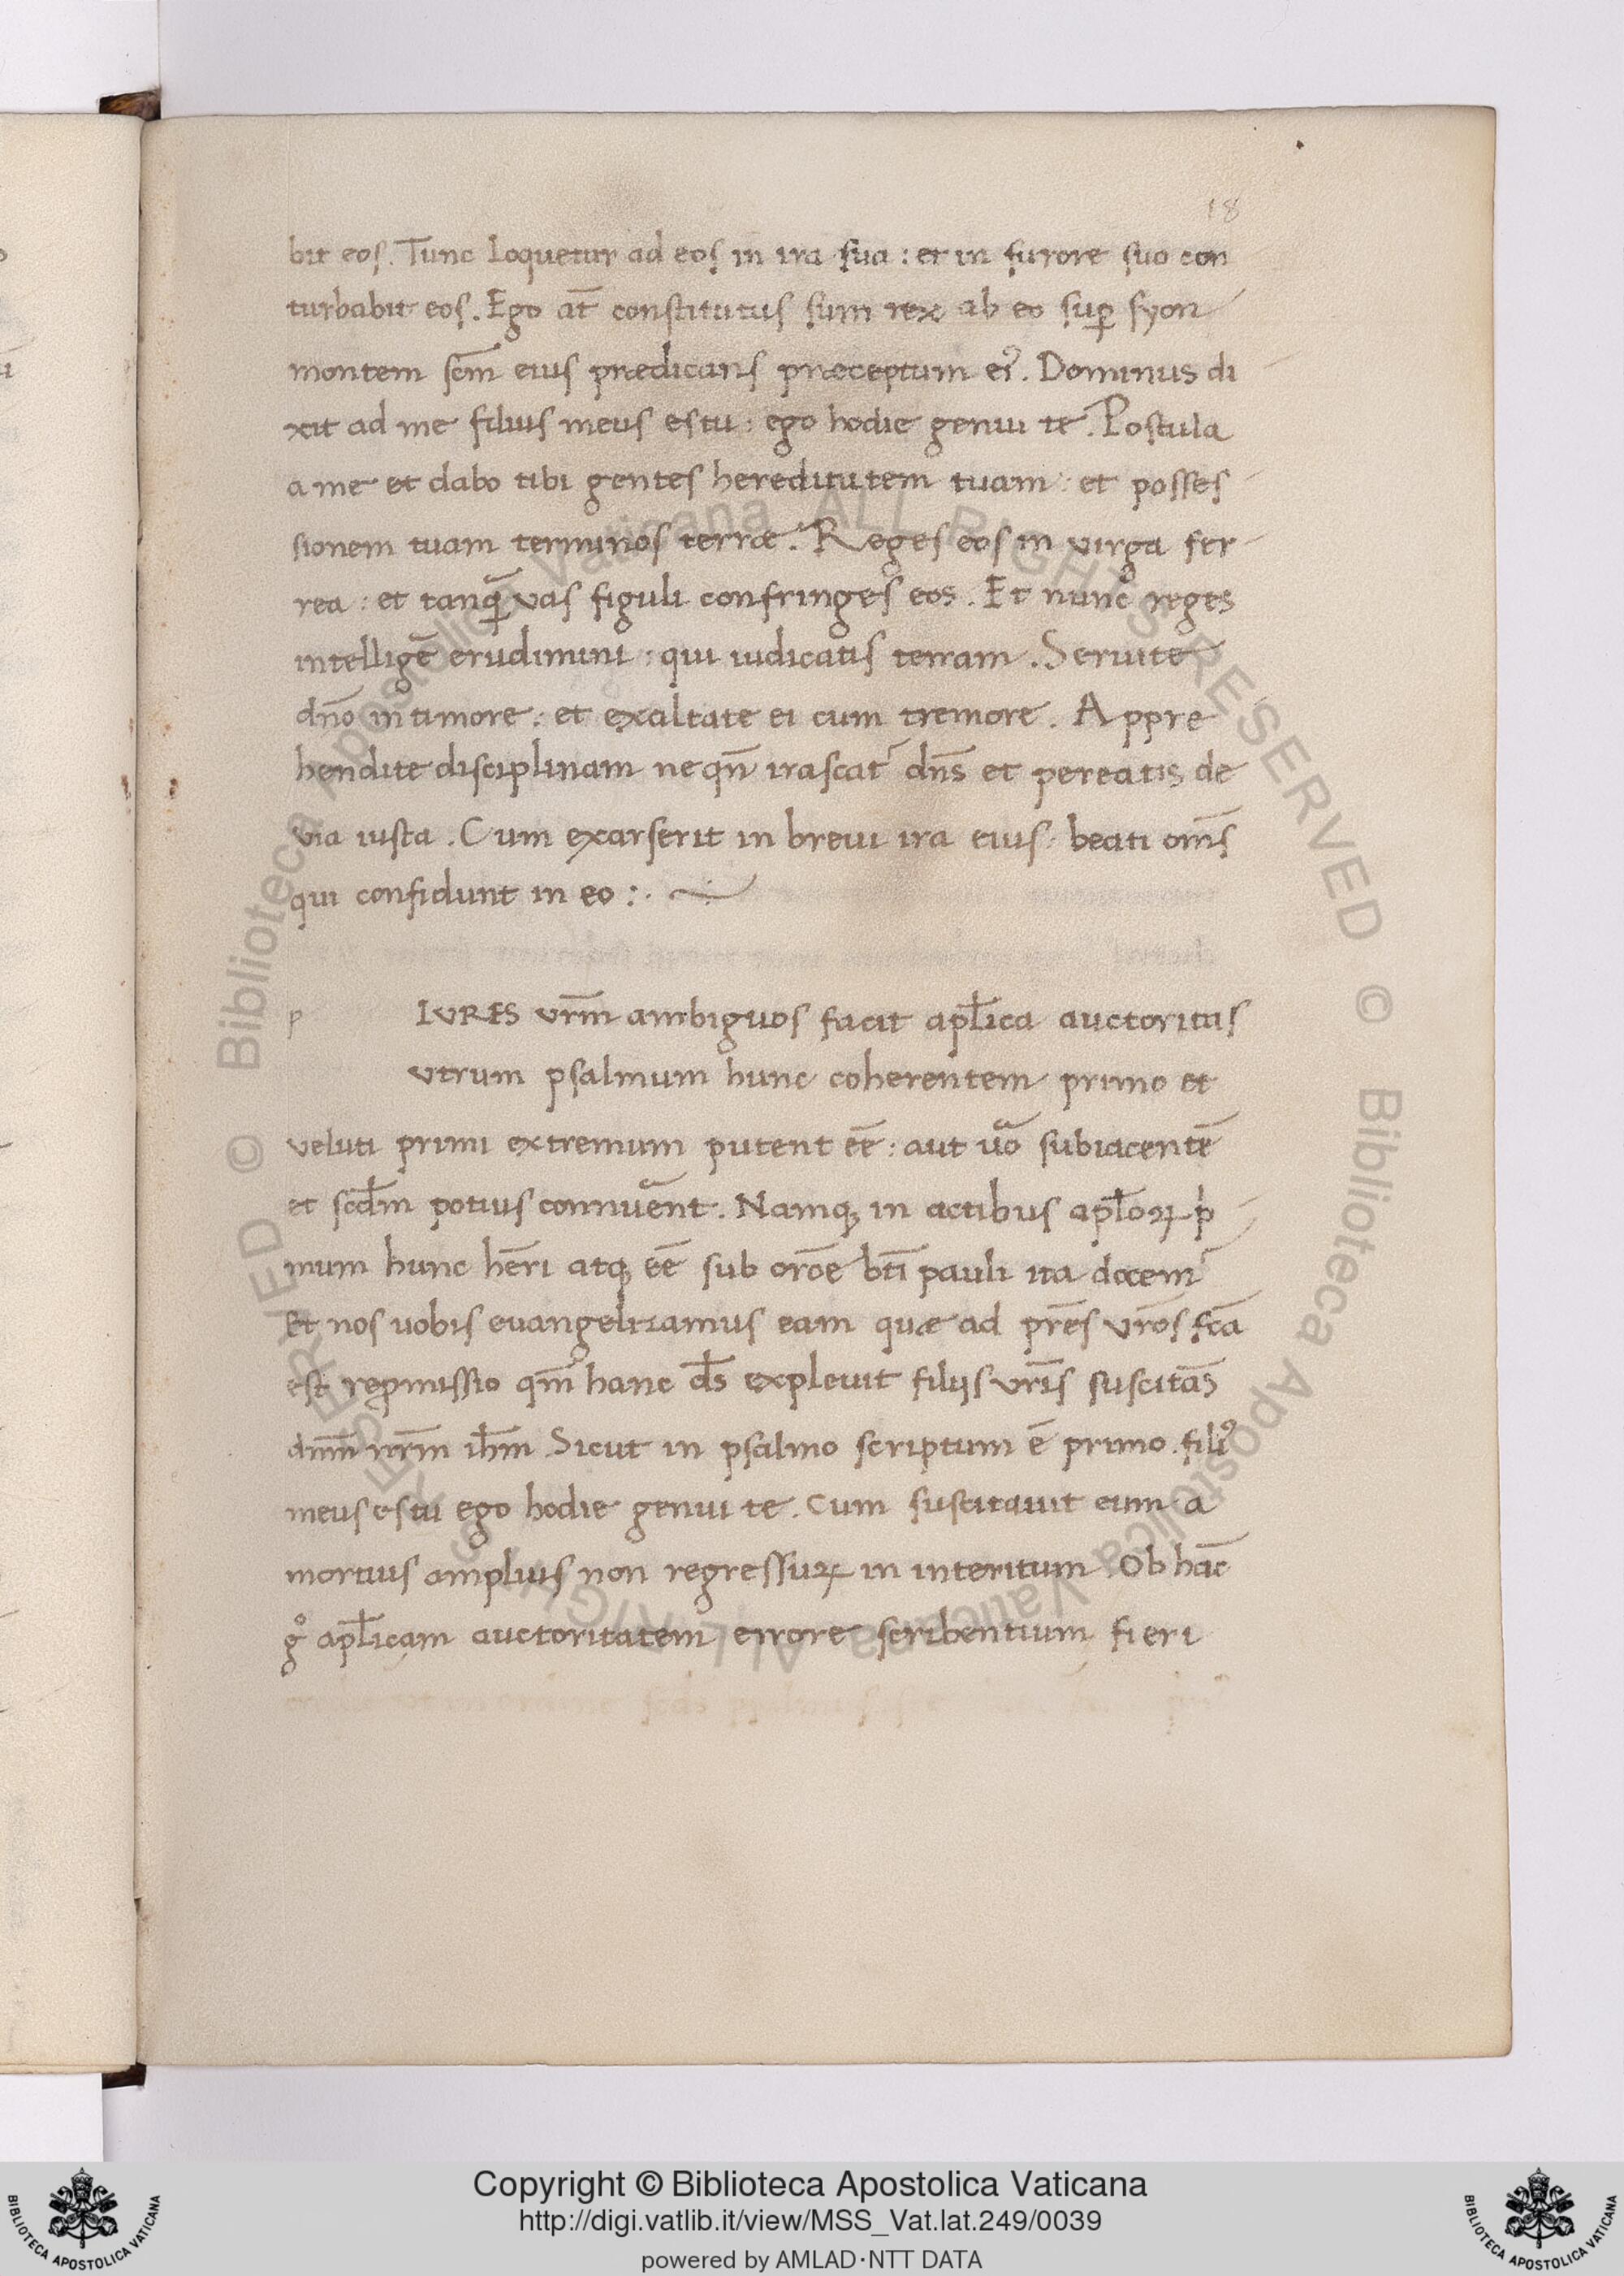 18
bit eos. Tunc loquetur ad eos in ira sua : et in furore suo con
turbabit eos. Ego at̄ constitutus sum rex ab eo sup̱ syon
montem scm̄ eius prædicans præceptum ei᷒. Dominus di
xit ad me filius meus es tu : ego hodie genui te. Postula
a me et dabo tibi gentes hereditatem tuam : et posses
sionem tuam terminos terræ. Reges eos in virga fer
rea : et tanꝗ̄ vas figuli confringes eos. Et nunc reges
intelligē erudimini : qui iudicatis terram. Seruite
dn̄o in timore : et exaltate ei cum tremore. Appre
hendite disciplinam ne qn̄ irascat᷑ dn̄s et pereatis de
via iusta. Cum exarserit in breui ira eius : beati om̄s
qui confidunt in eo :.
p IVRES vrm̄ ambiguos facit apl̄ica auctoritas
vtrum psalmum hunc coherentem primo et
veluti primi extremum putent eē : aut uͣo subiacentē
et scd̄m potius connuͣent. Namqꝫ in actibus apl̄oꝝ pⁱ
mum hunc hēri atqꝫ eē sub orōe btī pauli ita docem᷑
Et nos uobis euangelizamus eam quæ ad pr̄es vr̄os fcā
est reꝓmissio qm̄ hanc ds̄ expleuit filijs vr̄is suscitās
dnm̄ nrm̄ ihm̄ Sicut in psalmo scriptum ē primo. filiꝰ
meus es tu ego hodie genui te. Cum suscitauit eum a
mortuis amplius non regressuꝝ in interitum. Ob hāc
gͦ apl̄icam auctoritatem errore scribentium fieri
Copyright © Biblioteca Apostolica Vaticana
http://digi.vatlib.it/view/MSS_Vat.lat.249/0039
powered by AMLAD·NTT DATA
BIBLIOTECA APOSTOLICA VATICANA
BIBLIOTECA APOSTOLICA VATICANA
© Biblioteca Apostolica Vaticana ALL RIGHTS RESERVED
© Biblioteca Apostolica Vaticana ALL RIGHTS RESERVED